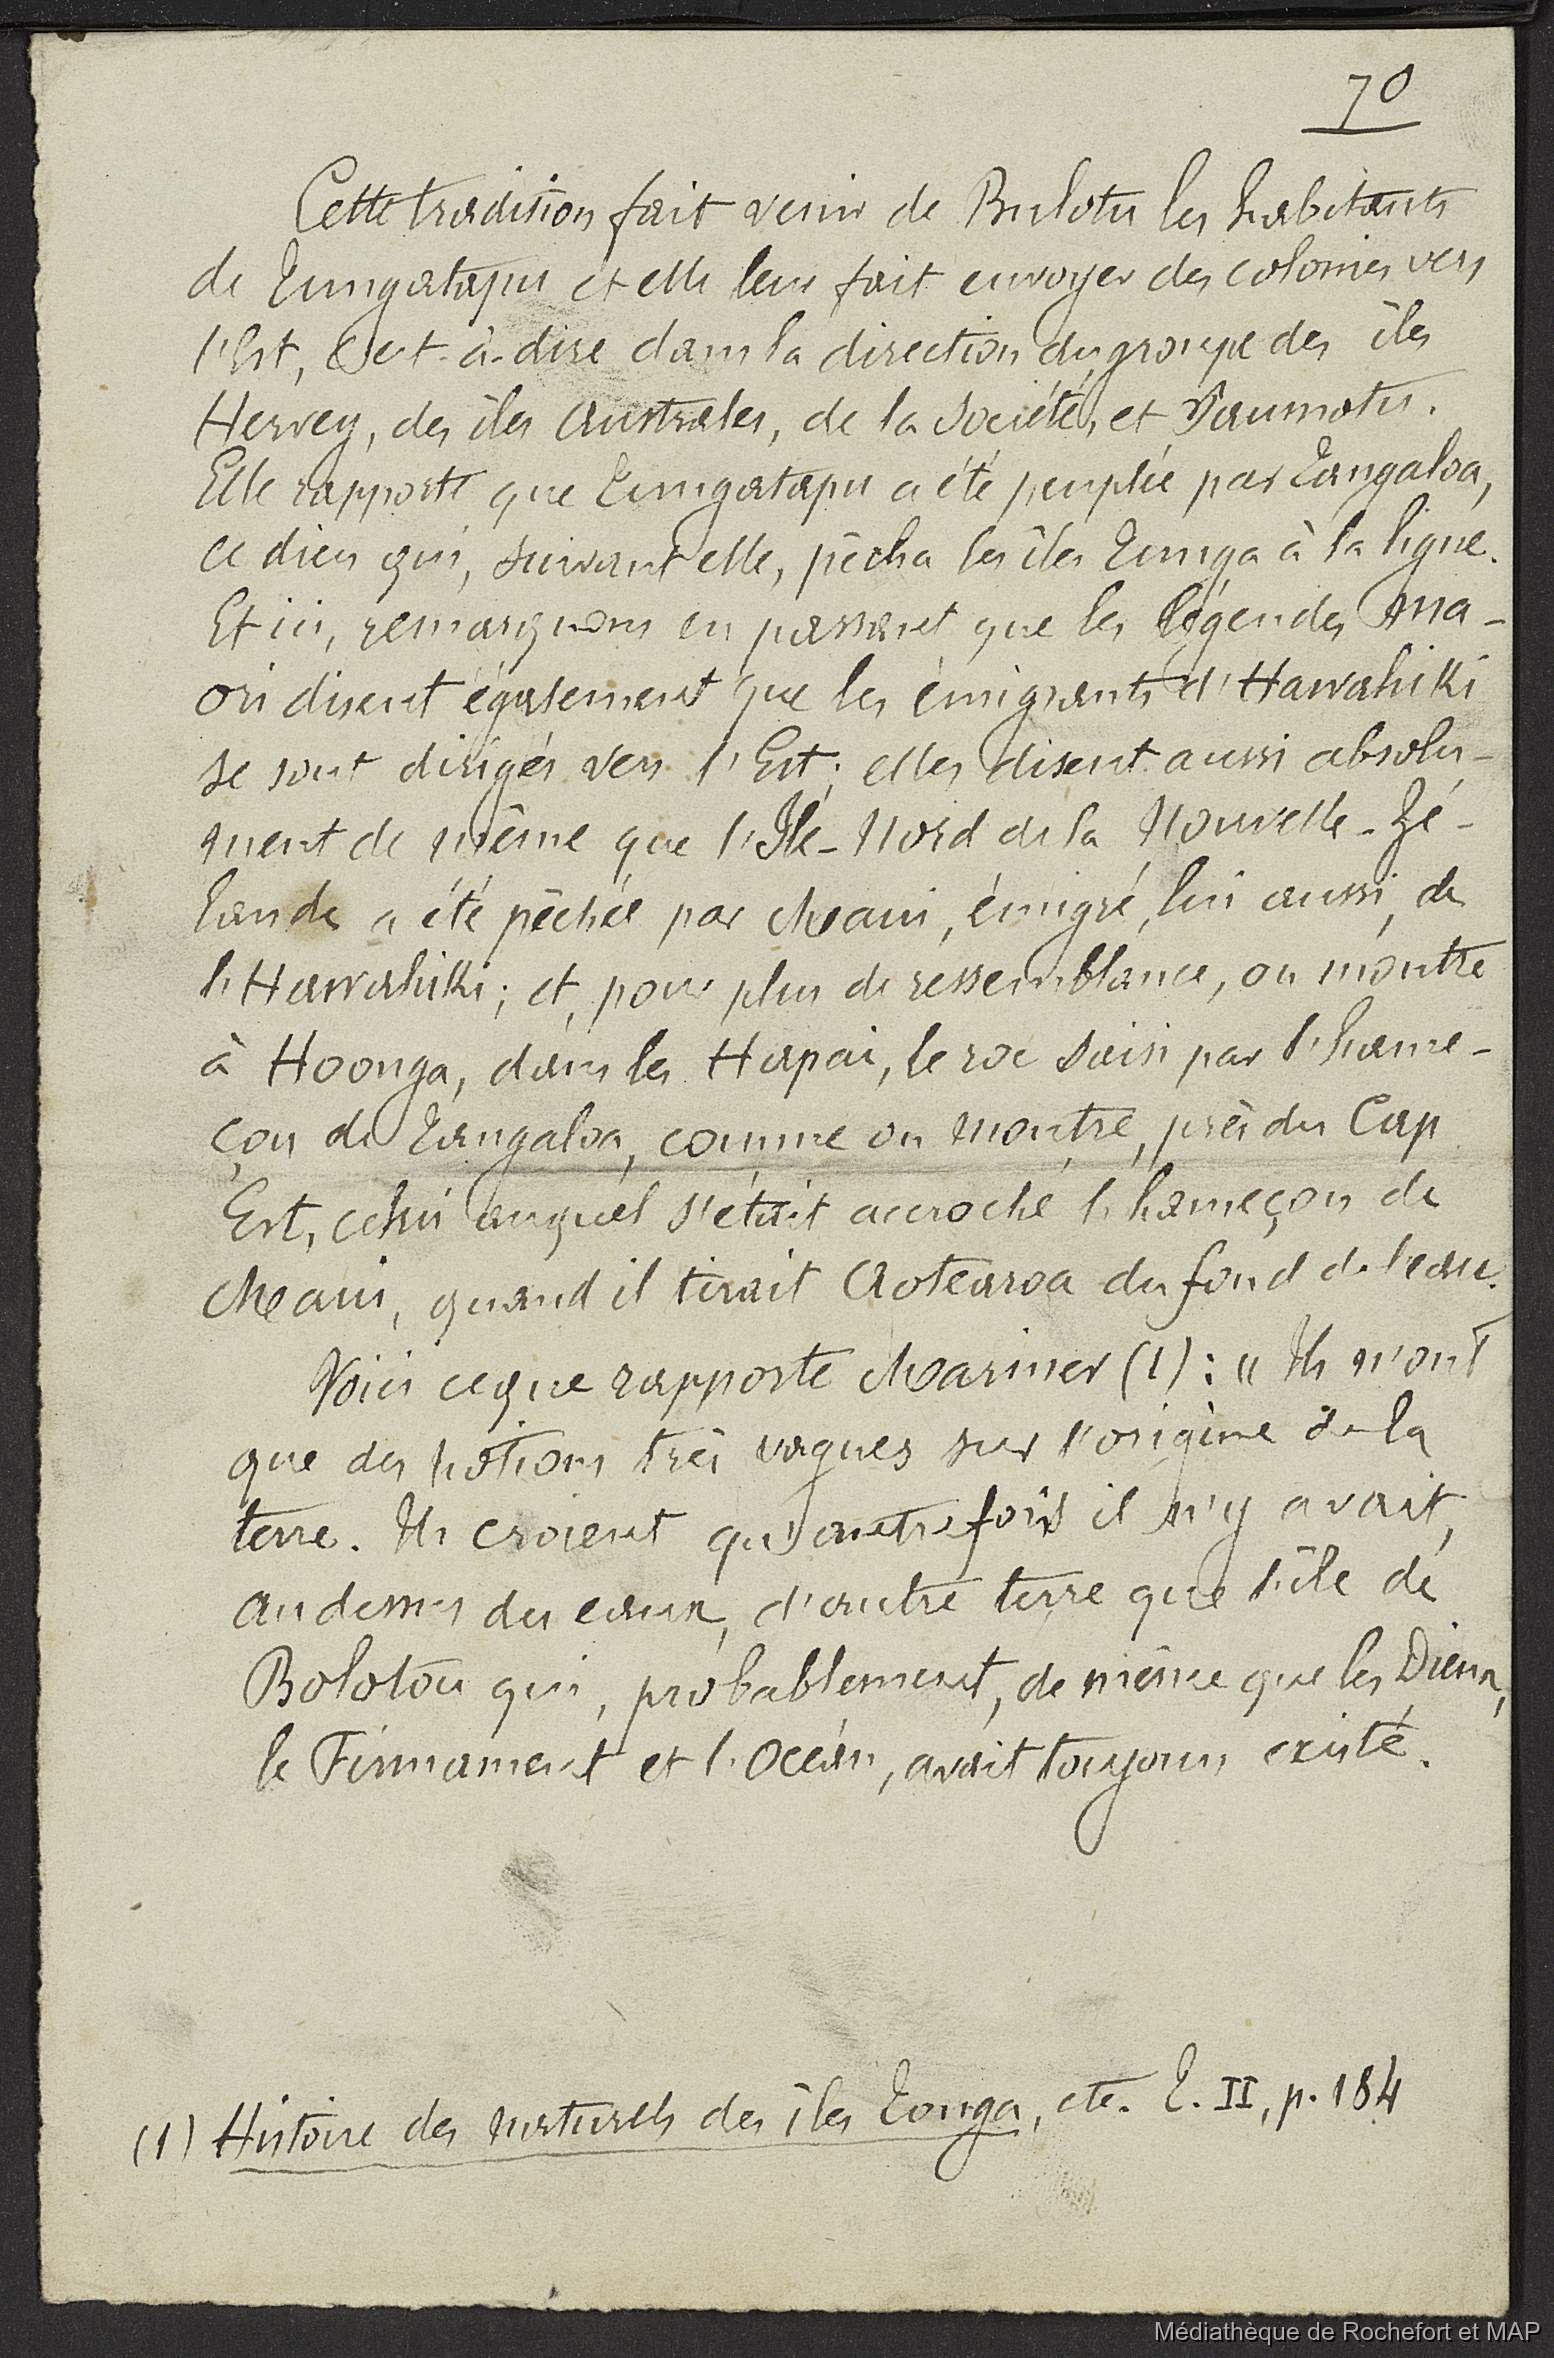 70
Cette tradition fait venir de Bulotu les habitants
de Tungatapu et elle leur fait envoyer des colonies vers
l'Est, c'est-à-dire dans la direction du groupe des îles
Hervey, des îles Australes, de la Société, et Paumotu.
Elle rapporte que Tungatapu a été peuplée par Tangaloa,
ce dieu qui, suivant elle, pêcha les îles Tunga à la ligne.
Et ici, remarquons en passant que les légendes Ma-
ori disent également que les émigrants d'Hawahiki
se sont dirigés vers l'Est; elles disent aussi absolu-
ment de même que l'Ile-Nord de la Nouvelle-Zé-
lande a été pêchée par Maui, émigré, lui aussi, de
l'Hawahiki; et, pour plus de ressemblance, on montre
à Hoonga, dans les Hapai, le roc saisi par l'hame-
çon de Tangaloa, comme on montre, près du Cap
Est, celui auquel s'était accroché l'hameçon de
Maui, quand il tirait Aotearoa du fond de l'eau.
Voici ce que rapporte Mariner (1): « Ils n'ont
que des notions très vagues sur l'origine de la
terre. Ils croient qu'autrefois il n'y avait,
au dessus des eaux, d'autre terre que l'île de
Bolotou qui, probablement, de même que les Dieux,
le Firmament et l'Océan, avait toujours existé.
(1) Histoire des naturels des îles Tonga, etc. T. II, p. 184
Médiathèque de Rochefort et MAP